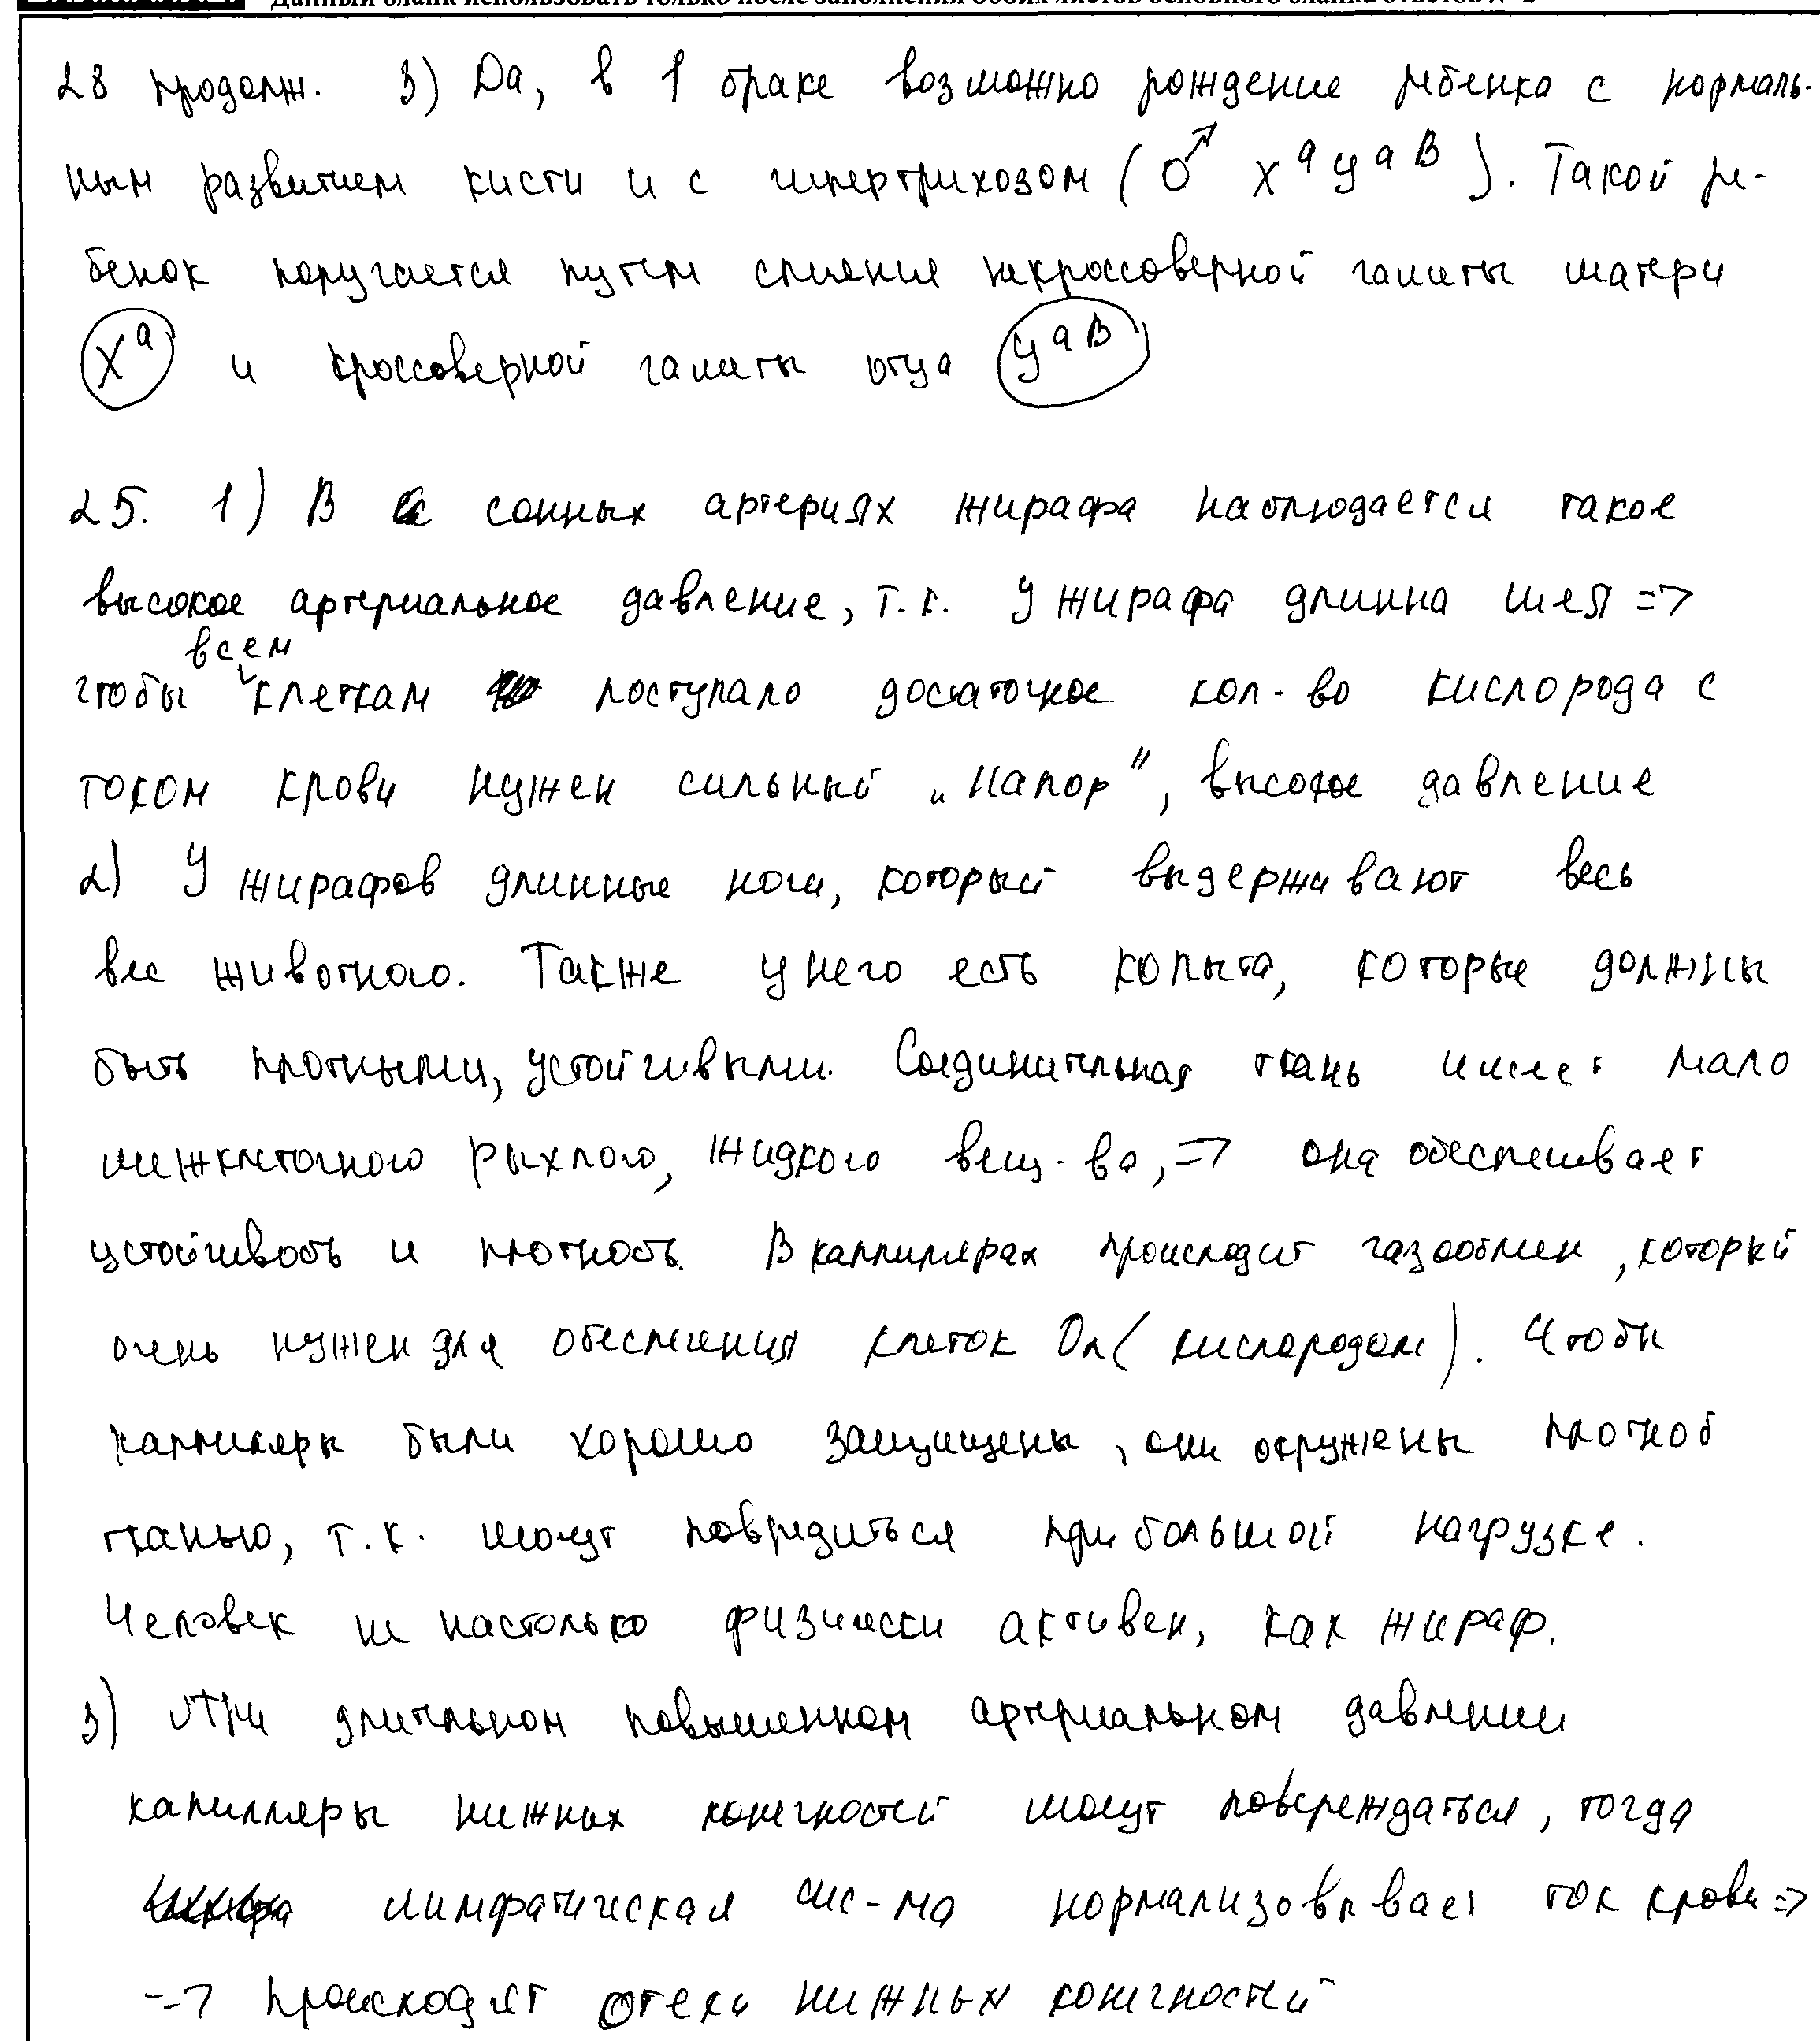 Данный бланк использовать только после заполнения обоих листов основного бланка ответов № 2
28 продолж. 3) Да, в 1 браке возможно рождение ребенка с нормаль-
ным развитием кисти и с гипертрихозом (♂ X^a У^aB). Такой ре-
бенок получается путем слияния некроссоверной гаметы матери
X^a и кроссоверной гаметы отца У^aB
25. 1) В сонных артериях жирафа наблюдается такое
высокое артериальное давление, т.к. У жирафа длинна шея =>
всем
чтобы клеткам поступало достаточное кол-во кислорода с
током крови нужен сильный „напор", высокое давление
2) У жирафов длинные ноги, который выдерживают весь
вес животного. Также у него есть копыта, которые должны
быть плотными, устойчивыми. Соединительная ткань имеет мало
межклеточного рыхлого, жидкого вещ-ва, => она обеспечивает
устойчивость и плотность. В каппилярах происходит газообмен, который
очень нужен для обеспечения клеток О2 (кислородом). Чтобы
каппиляры были хорошо защищены, они окружены плотной
тканью, т.к. могут повредиться при большой нагрузке.
Человек не настолько физически активен, как жираф.
3) При длительном повышенном артериальном давлении
капилляры нижних конечностей могут повреждаться, тогда
лимфатическая сис-ма нормализовывает ток крови =>
=> происходит отеки нижных конечностей